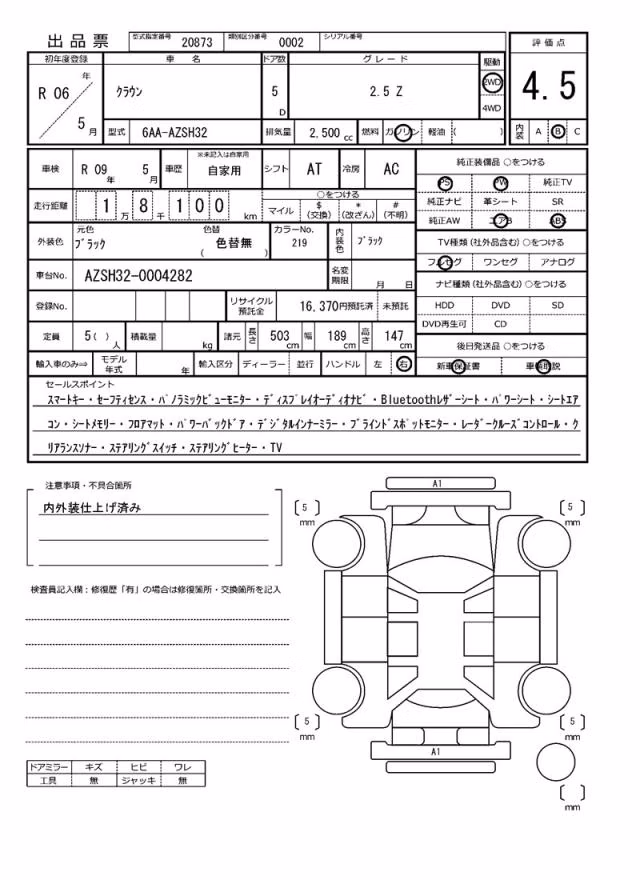 出品票
型式指定番号 20873 類別区分番号 0002 シリアル番号
評価点
4.5
内装 A B C
初年度登録 車名 ドア数 グレード 駆動
R 06 年 5 月
クラウン
5 D
2.5 Z
2WD
4WD
型式 6AA-AZSH32 排気量 2,500 cc 燃料 ガソリン 軽油 ( )
車検 R 09 年 5 月 車歴 ※未記入は自家用 自家用 シフト AT 冷房 AC
走行距離 1 万 8 千 1 0 0 km
○をつける
マイル $ (交換) * (改ざん) # (不明)
外装色 元色 ブラック 色替 ( 色替無 ) カラーNo. 219 内装色 ブラック
車台No. AZSH32-0004282 名変期限 月 日
登録No. リサイクル預託金 16,370円預託済 未預託
定員 5( ) 人 積載量 kg 諸元 長さ 503 cm 幅 189 cm 高さ 147 cm
輸入車のみ⇒ モデル年式 年 輸入区分 ディーラー 並行 ハンドル 左 右
純正装備品 ○をつける
PS PW 純正TV
純正ナビ 革シート SR
純正AW エアB ABS
TV種類 (社外品含む) ○をつける
フルセグ ワンセグ アナログ
ナビ種類 (社外品含む) ○をつける
HDD DVD SD
DVD再生可 CD
後日発送品 ○をつける
新車保証書 車輌取説
セールスポイント
スマートキー・セーフティセンス・パノラミックビューモニター・ディスプレイオーディオナビ・Bluetoothレザーシート・パワーシート・シートエア
コン・シートメモリー・フロアマット・パワーバックドア・デジタルインナーミラー・ブラインドスポットモニター・レーダークルーズコントロール・ク
リアランスソナー・ステアリングスイッチ・ステアリングヒーター・TV
注意事項・不具合箇所
内外装仕上げ済み
検査員記入欄：修復歴「有」の場合は修復箇所・交換箇所を記入
A1
[ 5 ] mm
[ 5 ] mm
[ 5 ] mm
[ 5 ] mm
A1
[ ] mm
ドアミラー キズ ヒビ ワレ
工具 無 ジャッキ 無